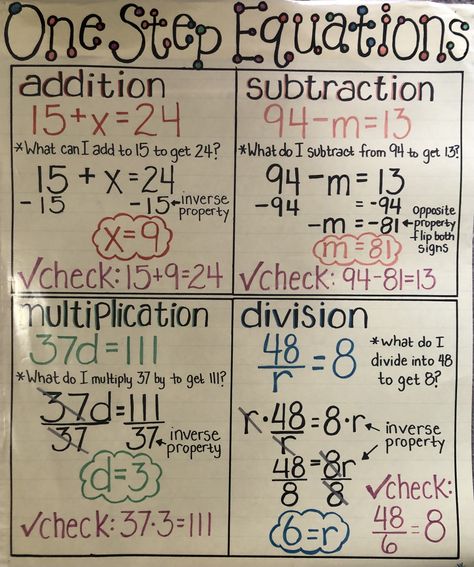 One Step Equations
addition
15+x=24
*What can I add to 15 to get 24?
15 + x = 24
-15 -15 ← inverse property
x=9
✓check: 15+9=24
subtraction
94-m=13
*What do I subtract from 94 to get 13?
94 - m = 13
-94 = -94
-m = -81 ← Opposite property flip both signs
m=81
✓check: 94-81=13
multiplication
37d=111
*What do I multiply 37 by to get 111?
37d=111
37 37 ← inverse property
d=3
✓check: 37·3=111
division
48/r=8
*What do I
divide into 48
to get 8?
r·48/r=8·r ← inverse
property
48/8=8r/8
6=r
✓check:
48/6=8